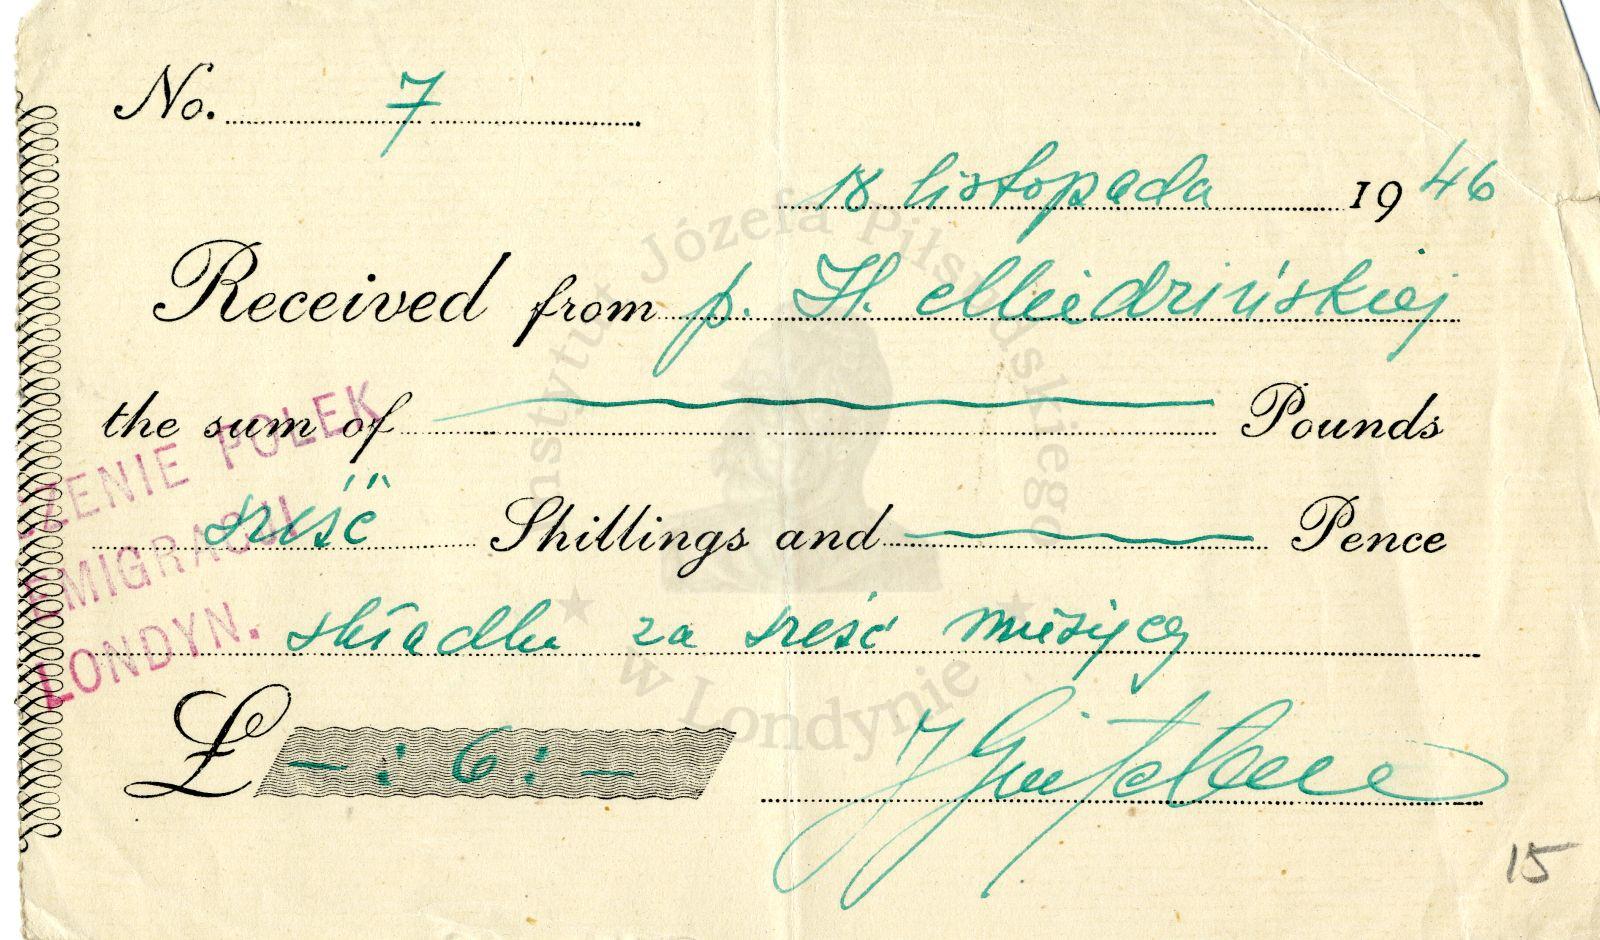 No. 7
18 listopada 1946
Received from p. H. Miedzińskiej
the sum of Pounds
sześć Shillings and Pence
składka za sześć miesięcy
£ — : 6 : —
ZENIE POLEK
EMIGRACJI
LONDYN.
Instytut Józefa Piłsudskiego
w Londynie
15